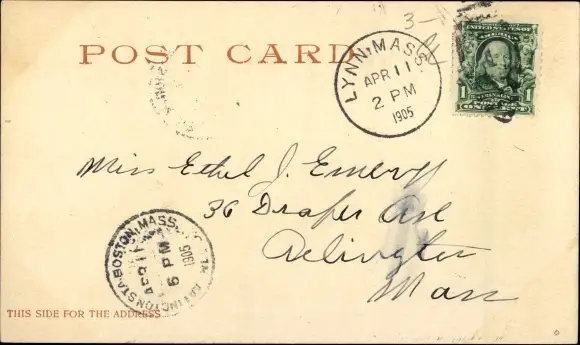 3-
POST CARD
LYNN, MASS.
APR 11
2 PM
1905
UNITED STATES OF
AMERICA
1 1
POSTAGE
ONE CENT
Miss Ethel J. Emery
36 Draper Ave
Arlington
Mass
BOSTON, MASS.
ARLINGTON STA.
APR 11
6 PM
1905
THIS SIDE FOR THE ADDRESS